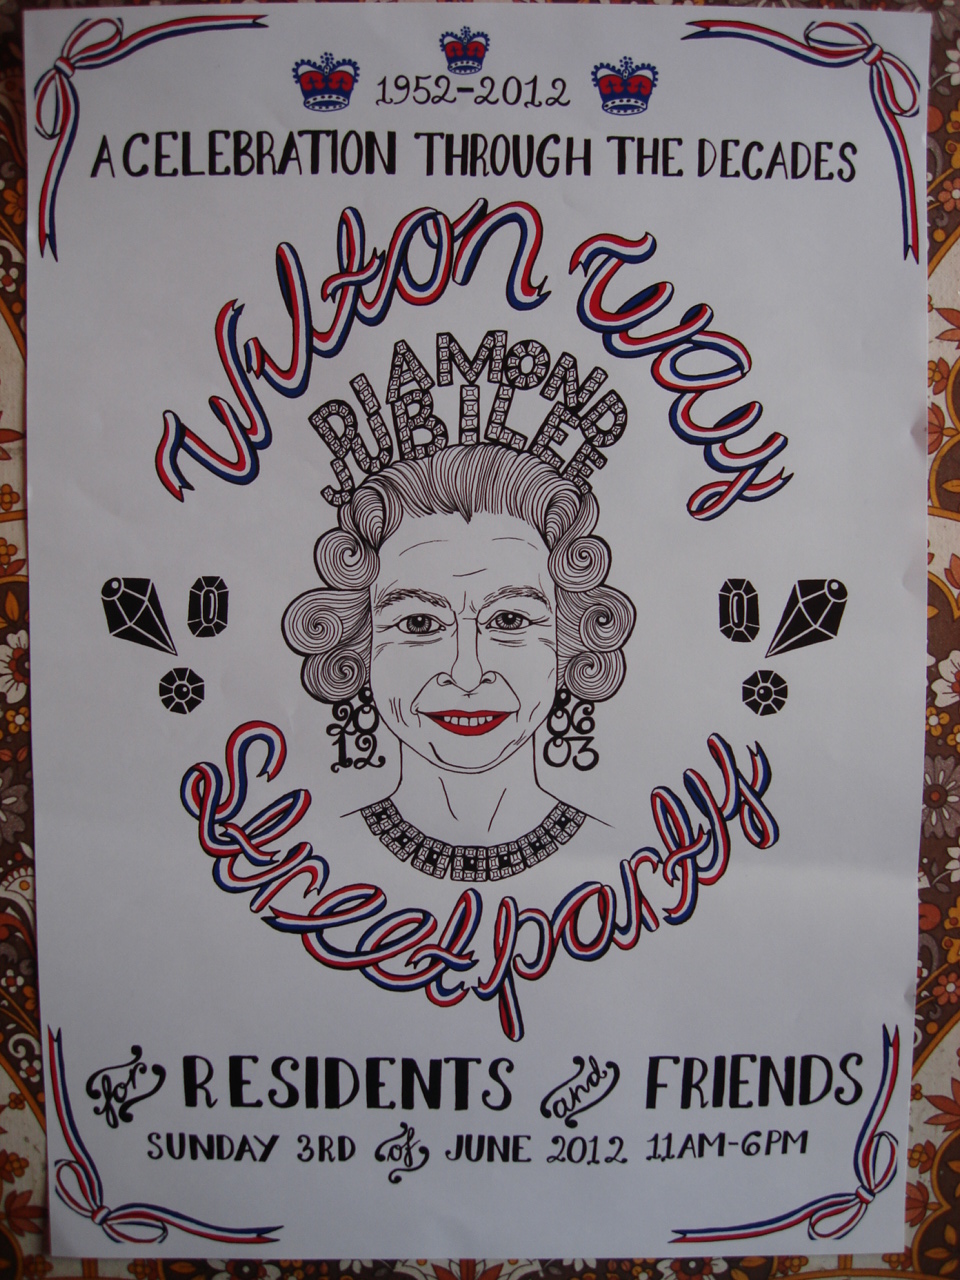 1952-2012
A CELEBRATION THROUGH THE DECADES
Wilton way
DIAMOND
JUBILEE
20
12
06
03
Street party
for RESIDENTS and FRIENDS
SUNDAY 3RD of JUNE 2012 11AM-6PM